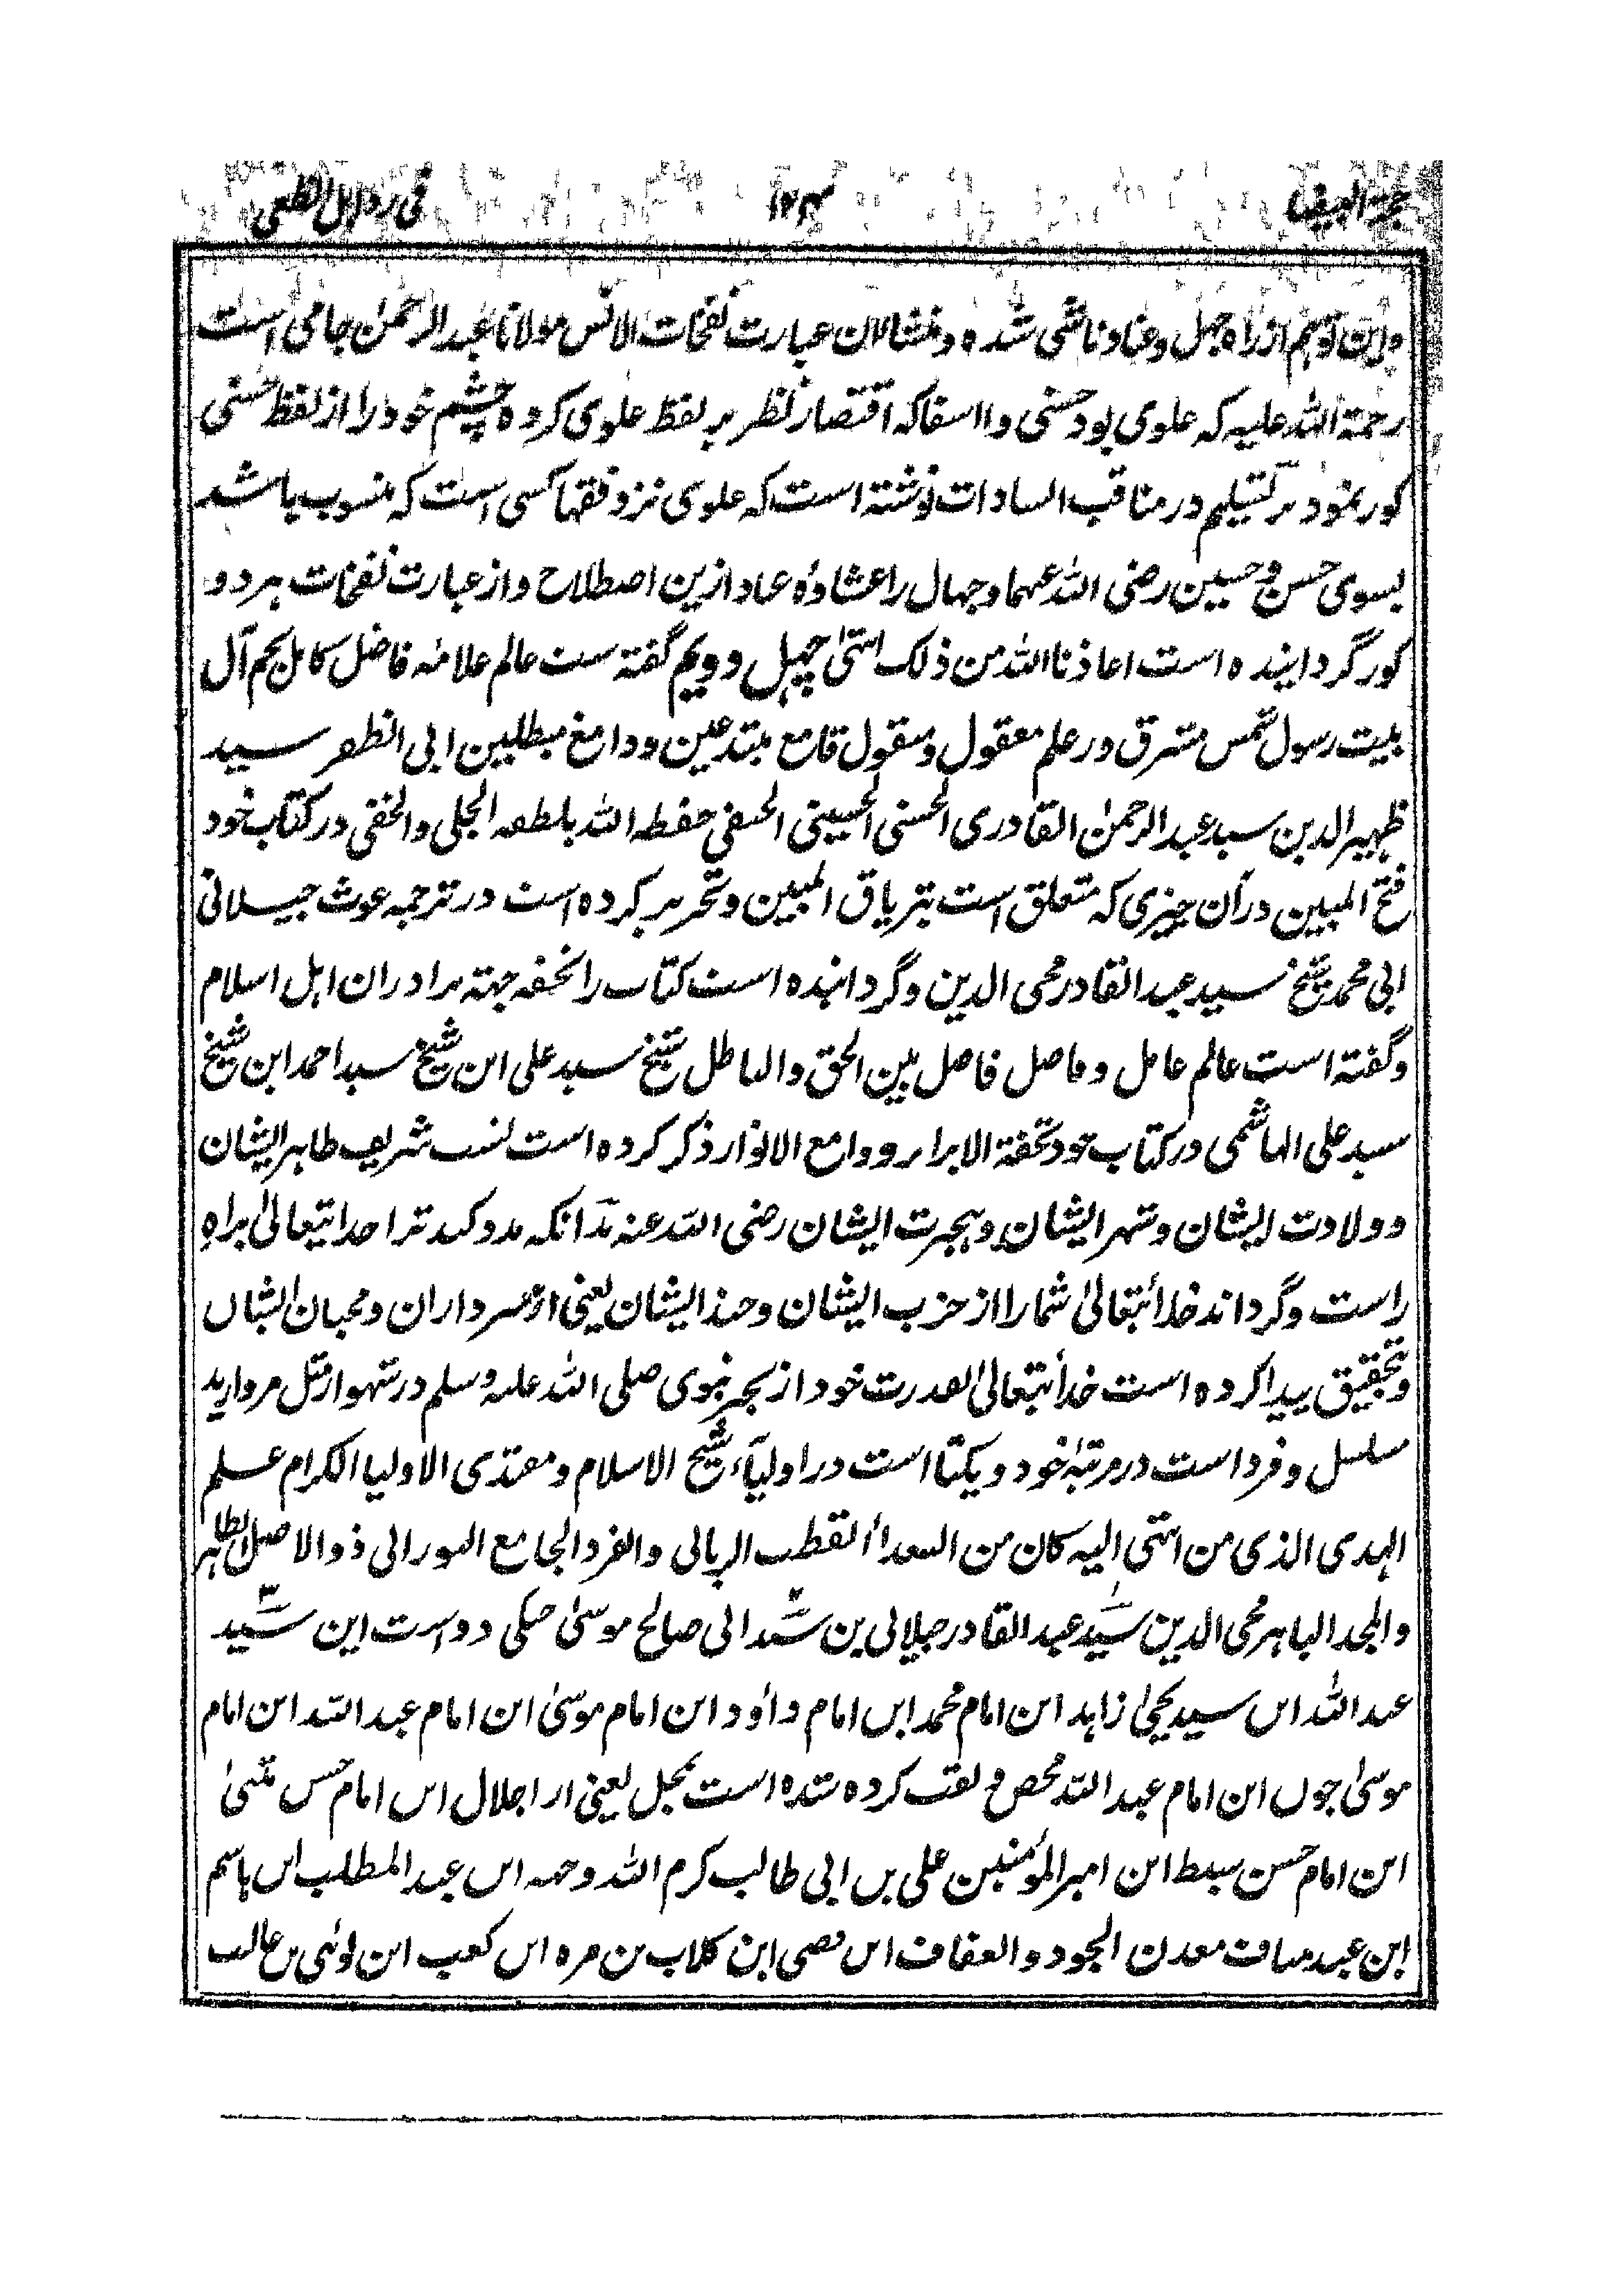 حجة البیضاء فی رد اہل الطغی
واین توہم از راہ جہل وعناد ناشی شدہ ومنشا لان عبارت نفحات الانس مولانا عبد الرحمٰن جامی است
رحمۃ اللہ علیہ کہ علوی بود حسنی وا اسفا کہ اقتصار نظر بر لفظ علوی کردہ چشم خود را از لفظ حسنی
کور نمود در مناقب السادات نوشتہ است کہ علوی نزد فقہا کسی است کہ منسوب باشد
بسوی حسن وحسین رضی اللہ عنہما وجہال را غشاوۂ عناد ازین اصطلاح واز عبارت نفحات ہر دو
کور گردانیدہ است اعاذنا اللہ من ذلک انتہیٰ چہل ودویم گفتہ ست عالم علامہ فاضل کامل نجم آل
بیت رسول شمس مشرق در علم معقول ومنقول قامع مبتدعین ودامغ مبطلین ابی الظفر سید
ظہیر الدین سید عبد الرحمٰن القادری الحسنی الحسینی الحنفی حفظہ اللہ بلطفہ الجلی والخفی در کتاب خود
فتح المبین دران چیزی کہ متعلق است بتریاق المبین وتحریر کردہ است در ترجمہ غوث جیلانی
ابی محمد شیخ سید عبد القادر محی الدین وگردانیدہ است کتاب را تحفہ جہتہ برادران اہل اسلام
وگفتہ است عالم عامل وفاضل فاصل بین الحق والباطل شیخ سید علی ابن شیخ سید احمد ابن شیخ
سید علی الہاشمی در کتاب خود تحفۃ الابرار ولوامع الانوار ذکر کردہ است نسب شریف طاہر ایشان
وولادت ایشان وشہر ایشان وہجرت ایشان رضی اللہ عنہ بدانکہ مدد کند ترا خدایتعالیٰ براہِ
راست وگرداند خدایتعالیٰ شما را از حزب ایشان وجند ایشان یعنی از سرداران ومحبان ایشان
وتحقیق پیدا کردہ است خدایتعالیٰ بقدرت خود از بحر نبوی صلی اللہ علیہ وسلم در شہوار مثل مروارید
سلسل وفرد است در مرتبۂ خود ویکتا است در اولیآء شیخ الاسلام ومقتدی الاولیا الکرام علم
الہدی الذی من انتمی الیہ کان من السعداء القطب الربانی والفرد الجامع النورانی ذو الاصل الطاہر
والمجد الباہر محی الدین سید عبد القادر جیلانی بن سید ابی صالح موسیٰ جنکی دوست ابن سید
عبد اللہ ابن سید یحییٰ زاہد ابن امام محمد ابن امام داؤد ابن امام موسیٰ ابن امام عبد اللہ ابن امام
موسیٰ جون ابن امام عبد اللہ محض ولقب کردہ شدہ است بمجل یعنی از اجلال ابن امام حسن مثنیٰ
ابن امام حسن سبط ابن امیر المؤمنین علی بن ابی طالب کرم اللہ وجہہ ابن عبد المطلب ابن ہاشم
ابن عبد مناف معدن الجود والعفاف ابن قصی ابن کلاب بن مرہ ابن کعب ابن لوئی بن غالب